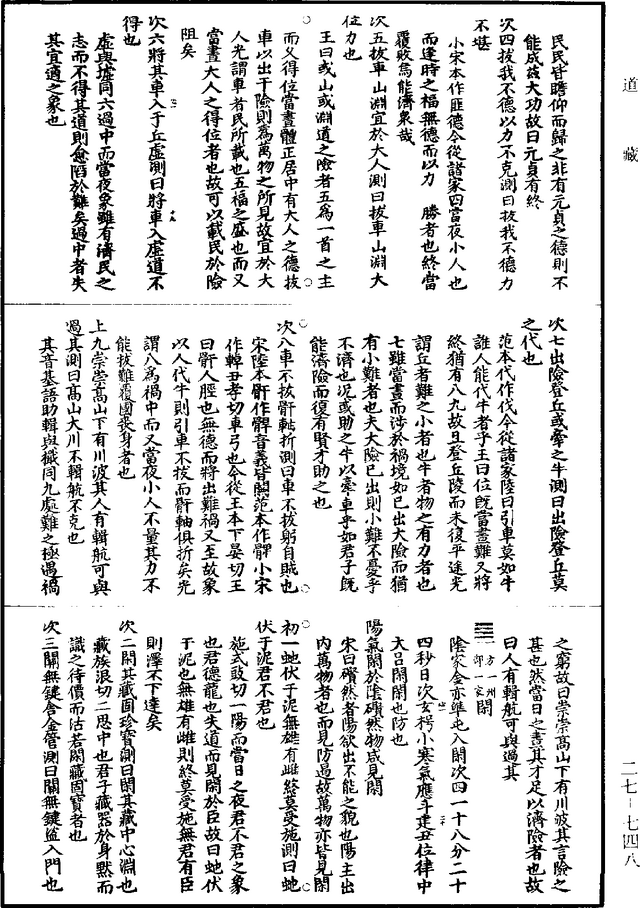 道藏
民民皆瞻仰而歸之非有元貞之德則不
能成茲大功故曰元貞有終
次四拔我不德以力不克測曰拔我不德力
不堪
小宋本作匪德今從諸家四當夜小人也
而逢時之福無德而以力 勝者也終當
覆敗焉能濟衆哉
次五拔車山淵宜於大人測曰拔車山淵大
位力也
王曰或山或淵道之險者五為一首之主
而又得位當晝體正居中有大人之德拔
車以出于險則為萬物之所見故宜於大
人光謂車者民所載也五福之盛也而又
當晝大人之得位者也故可以載民於險
阻矣
次六將其車入于丘虛測曰將車入虛道不
得也
虛與墟同六過中而當夜象雖有濟民之
志而不得其道則愈陷於難矣過中者失
其宜適之象也
次七出險登丘或牽之牛測曰出險登丘莫
之代也
范本代作伐今從諸家陸曰引車莫如牛
誰人能代牛者乎王曰位既當晝難又將
終猶有八九故且登丘陵而未復平途光
謂丘者難之小者也牛者物之有力者也
七雖當晝而涉於禍境如已出大險而猶
有小難者也夫大險已出則小難不憂乎
不濟也況或助之牛以牽車乎如君子既
能濟險而復有賢才助之也
次八車不拔骭軸折測曰車不拔躬自賊也
宋陸本骭作髀音義皆闕范本作髀小宋
作𨍋丑孝切車弓也今從王本下晏切王
曰骭人脛也無德而將出難禍又至故象
以人代牛則引車不拔而骭軸俱折矣光
謂八為禍中而又當夜小人不量其力不
能拔難覆國喪身者也
上九崇崇高山下有川波其人有輯航可與
過其測曰高山大川不輯航不克也
其音基語助輯與檝同九處難之極遇禍
之窮故曰崇崇高山下有川波其言險之
甚也然當日之晝其才足以濟險者也故
曰人有輯航可與過其
一方一州
一部一家
閑
陰家金亦準屯入閑次四一十八分二十
四秒日次女枵小寒氣應斗建丑位律中
大呂閑閑也防也
陽氣閑於陰礥然物咸見閑
宋曰礥然者陽欲出不能之貌也陽主出
內萬物者也而見防遏故萬物亦皆見閑
初一虵伏于泥無雄有雌終莫受施測曰虵
伏于泥君不君也
施式䜴切一陽而當日之夜君不君之象
也君德龍也失道而見閑於臣故曰虵伏
于泥也無雄有雌則終莫受施無君有臣
則澤不下達矣
次二閑其藏固珍寶測曰閑其藏中心淵也
藏族浪切二思中也君子藏器於身默而
識之待價而沽若閑藏固寶者也
次三關無鍵舍金管測曰關無鍵盜入門也
二七-七四八